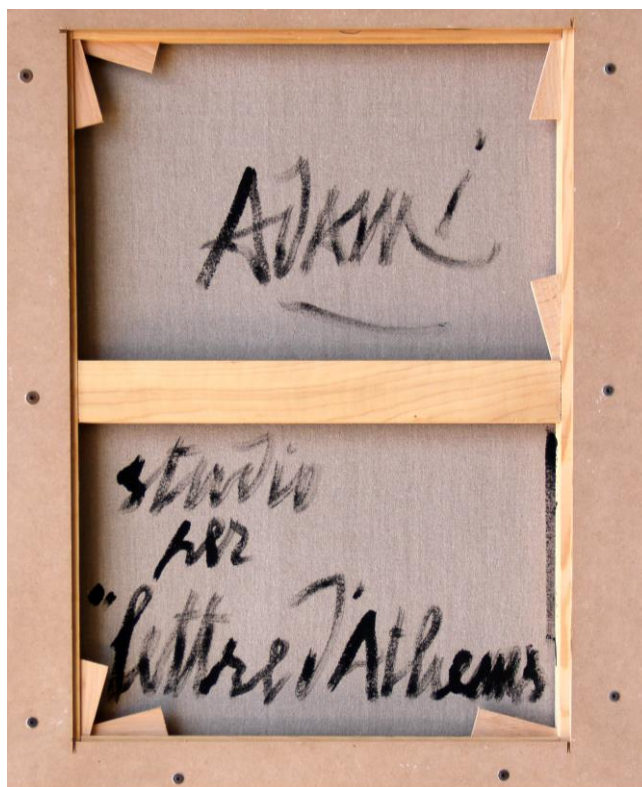 Adami
studio
per
"lettre d'Athens